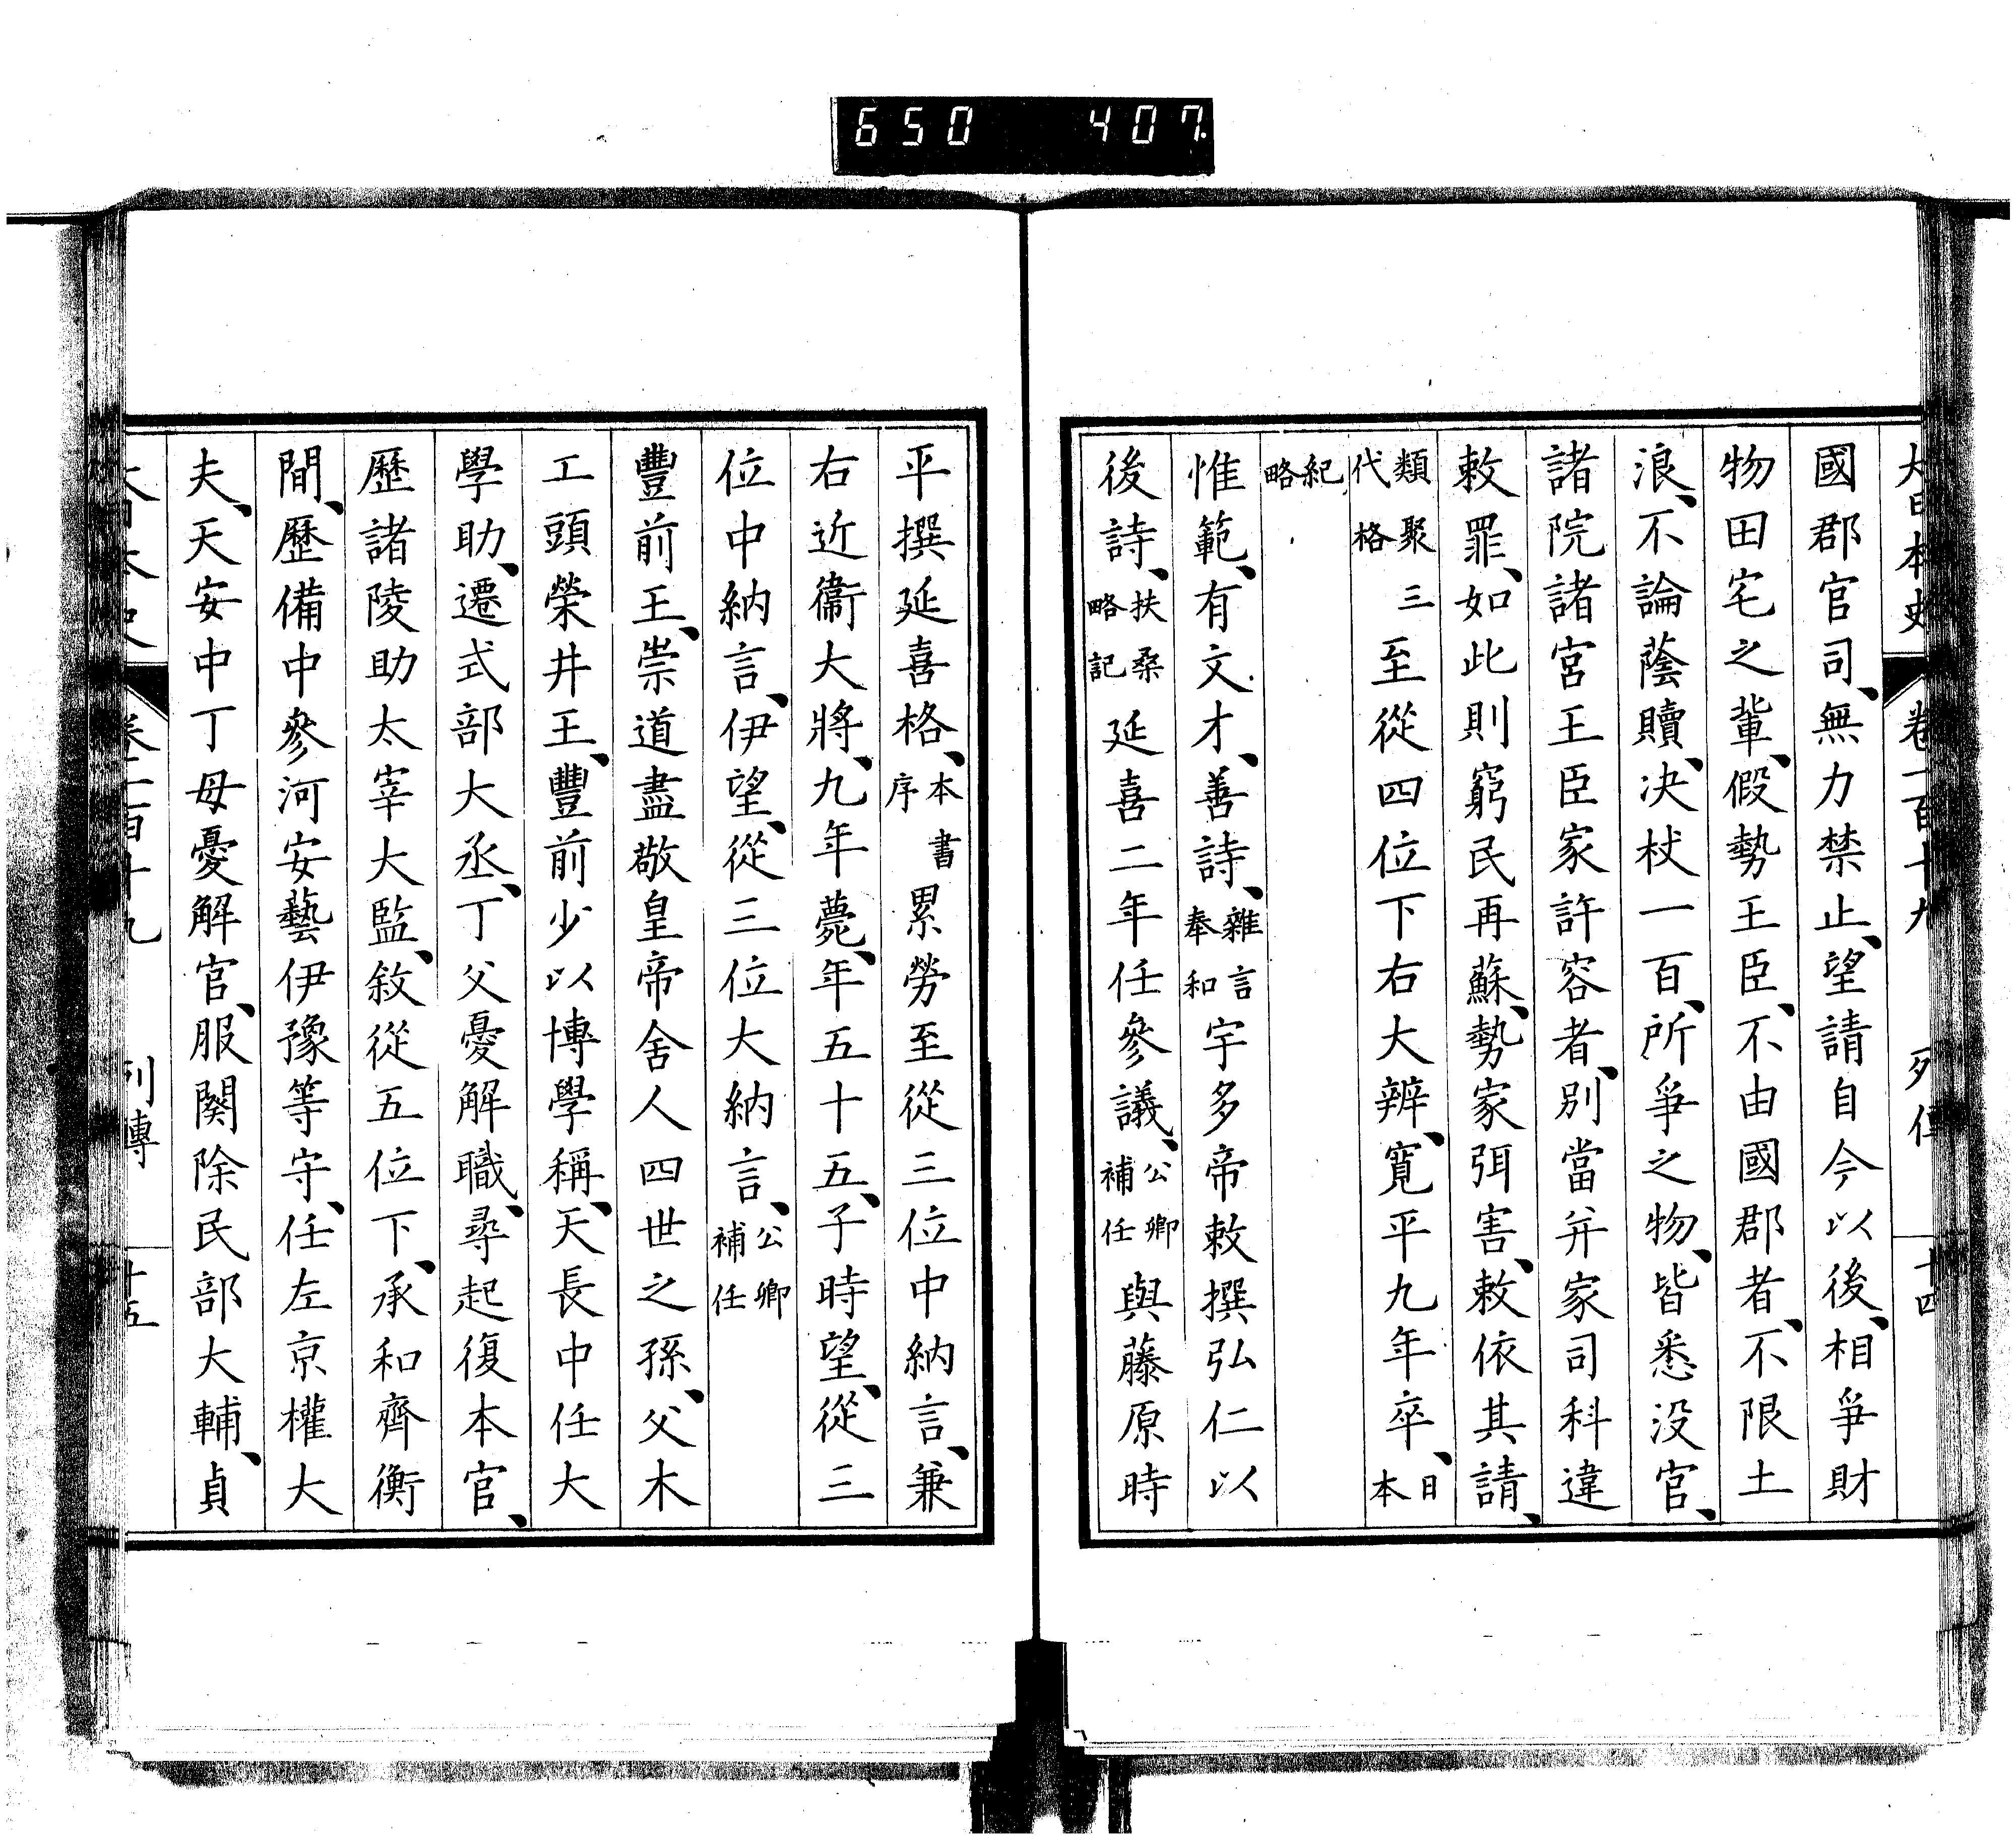 650 407
大日本史 卷一百十九 列傳 十四
國郡官司、無力禁止、望請自今以後、相爭財
物田宅之輩、假勢王臣、不由國郡者、不限土
浪、不論蔭贖、决杖一百、所爭之物、皆悉没官、
諸院諸宮王臣家許容者、別當并家司科違
敕罪、如此則窮民再蘇、勢家弭害、敕依其請、
類聚三代格至從四位下右大辨、寛平九年卒、日本
紀略
惟範、有文才、善詩、雜言奉和宇多帝敕撰弘仁以
後詩、扶桑略記延喜二年任參議、公卿補任與藤原時
平撰延喜格、本書序累勞至從三位中納言、兼
右近衞大將、九年薨、年五十五、子時望、從三
位中納言、伊望、從三位大納言、公卿補任
豐前王、崇道盡敬皇帝舍人四世之孫、父木
工頭榮井王、豐前少以博學稱、天長中任大
學助、遷式部大丞、丁父憂解職、尋起復本官、
歷諸陵助太宰大監、敘從五位下、承和齊衡
間、歷備中參河安藝伊豫等守、任左京權大
夫、天安中丁母憂解官、服闋除民部大輔、貞
大日本史 卷一百十九 列傳 十五